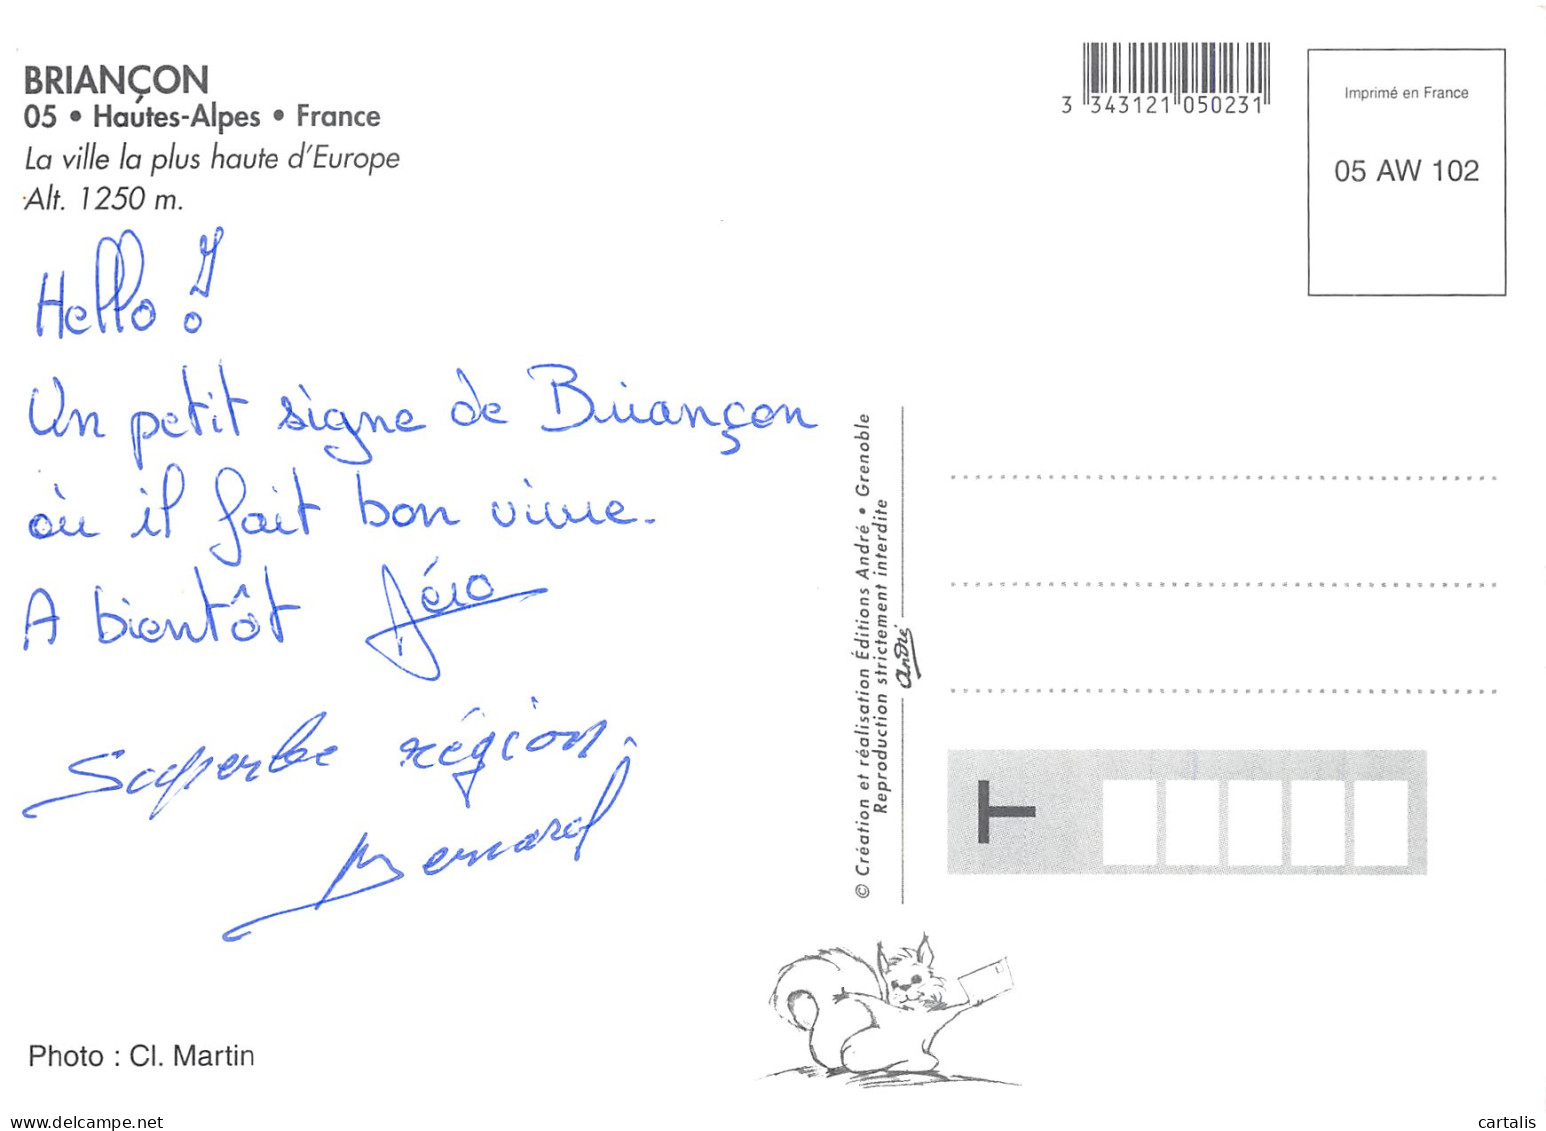 BRIANÇON
05 • Hautes-Alpes • France
La ville la plus haute d'Europe
Alt. 1250 m.
3 343121 050231
Imprimé en France
05 AW 102
Hello !
Un petit signe de Briançon
où il fait bon vivre.
A bientôt
Superbe région.
Bernard
© Création et réalisation Éditions André • Grenoble
Reproduction strictement interdite
André
Photo : Cl. Martin
www.delcampe.net
cartalis